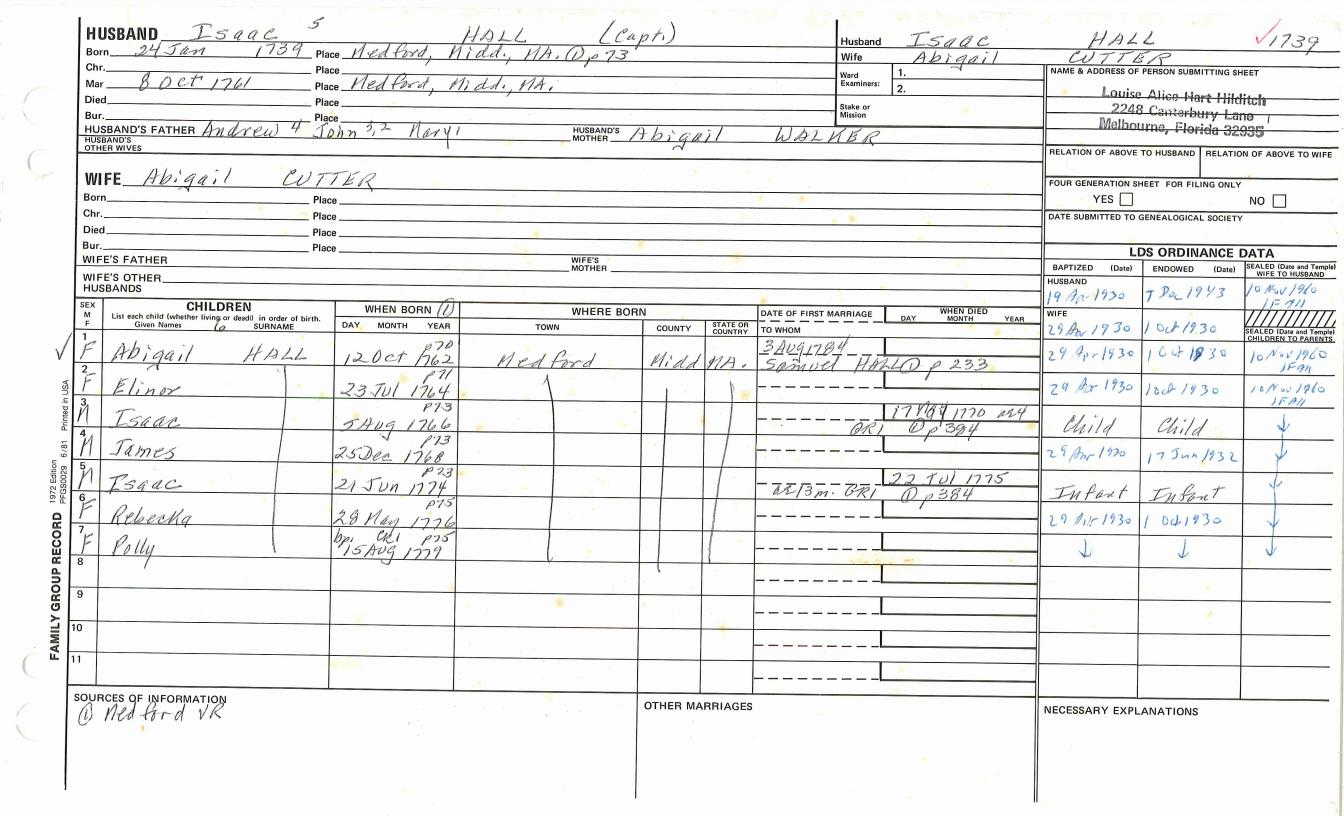 HUSBAND Isaac 5 HALL (Capt.)
Born 24 Jan 1739 Place Medford, Midd., MA. ① p73
Chr. Place
Mar 8 Oct 1761 Place Medford, Midd., MA.
Died Place
Bur. Place
HUSBAND'S FATHER Andrew 4 John 3,2 Mary 1 HUSBAND'S MOTHER Abigail WALKER
HUSBAND'S OTHER WIVES
WIFE Abigail CUTTER
Born Place
Chr. Place
Died Place
Bur. Place
WIFE'S FATHER WIFE'S MOTHER
WIFE'S OTHER HUSBANDS
Husband Isaac HALL ✓1739
Wife Abigail CUTTER
Ward Examiners: 1.
2.
Stake or Mission
NAME & ADDRESS OF PERSON SUBMITTING SHEET
Louise Alice Hart Hilditch
2248 Canterbury Lane
Melbourne, Florida 32935
RELATION OF ABOVE TO HUSBAND RELATION OF ABOVE TO WIFE
FOUR GENERATION SHEET FOR FILING ONLY
YES NO
DATE SUBMITTED TO GENEALOGICAL SOCIETY
LDS ORDINANCE DATA
BAPTIZED (Date) ENDOWED (Date) SEALED (Date and Temple) WIFE TO HUSBAND
HUSBAND
19 Apr 1930 5 Dec 1943 10 Nov 1960
IFall
WIFE
29 Apr 1930 1 Oct 1930
SEALED (Date and Temple) CHILDREN TO PARENTS
SEX M F
CHILDREN
List each child (whether living or dead) in order of birth.
Given Names 6 SURNAME
WHEN BORN ①
DAY MONTH YEAR
WHERE BORN
TOWN COUNTY STATE OR COUNTRY
DATE OF FIRST MARRIAGE
TO WHOM
WHEN DIED
DAY MONTH YEAR
✓ 1 F Abigail HALL p70 12 Oct 1762 Medford Midd MA. 3 Aug 1784 Samuel HALL ① p 233 29 Apr 1930 1 Oct 1930 10 Nov 1960 IFall
2 F Elinor p71 23 Jul 1764 29 Apr 1930 1 Oct 1930 10 Nov 1960 IFall
3 M Isaac p73 5 Aug 1766 17 May 1770 ae4 GR1 ① p384 Child Child ↓
4 M James p73 25 Dec 1768 29 Apr 1930 17 Jun 1932 ↓
5 M Isaac p73 21 Jun 1774 22 Jul 1775 ae13m. GR1 ① p384 Infant Infant
6 F Rebecka p75 28 May 1776 29 Apr 1930 1 Oct 1930 ↓
7 F Polly bp. CR1 p75 15 Aug 1779 ↓ ↓ ↓
8
9
10
11
SOURCES OF INFORMATION
① Medford VR
OTHER MARRIAGES
NECESSARY EXPLANATIONS
FAMILY GROUP RECORD 1972 Edition PFGS0029 6/81 Printed in USA